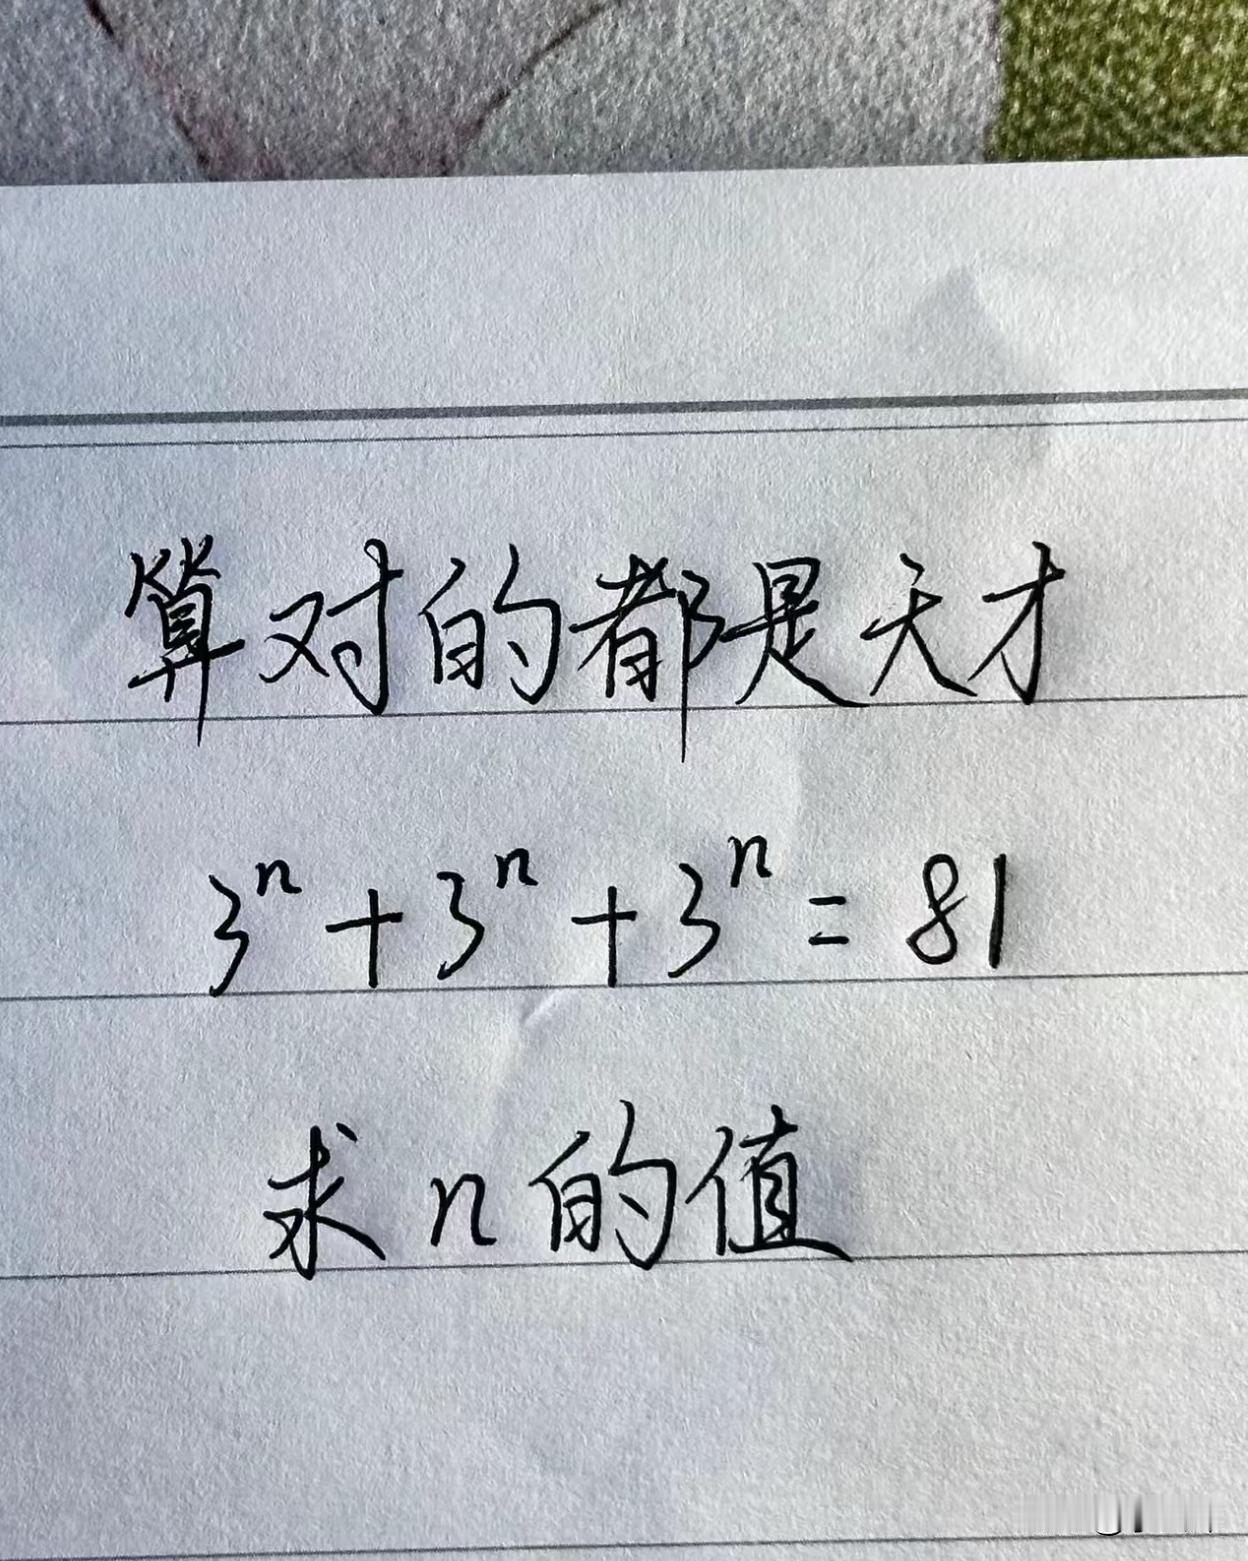 算对的都是天才
3ⁿ+3ⁿ+3ⁿ=81
求n的值